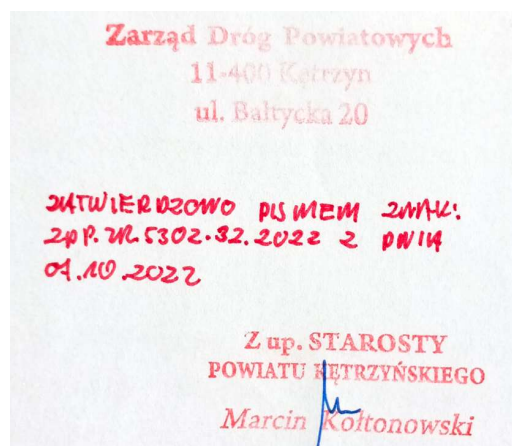 Zarząd Dróg Powiatowych
11-400 Kętrzyn
ul. Bałtycka 20
ZATWIERDZONO PISMEM ZNAK:
ZDP.ZR.5302.32.2022 Z DNIA
04.10.2022
Z up. STAROSTY
POWIATU KĘTRZYŃSKIEGO
Marcin Kołtonowski